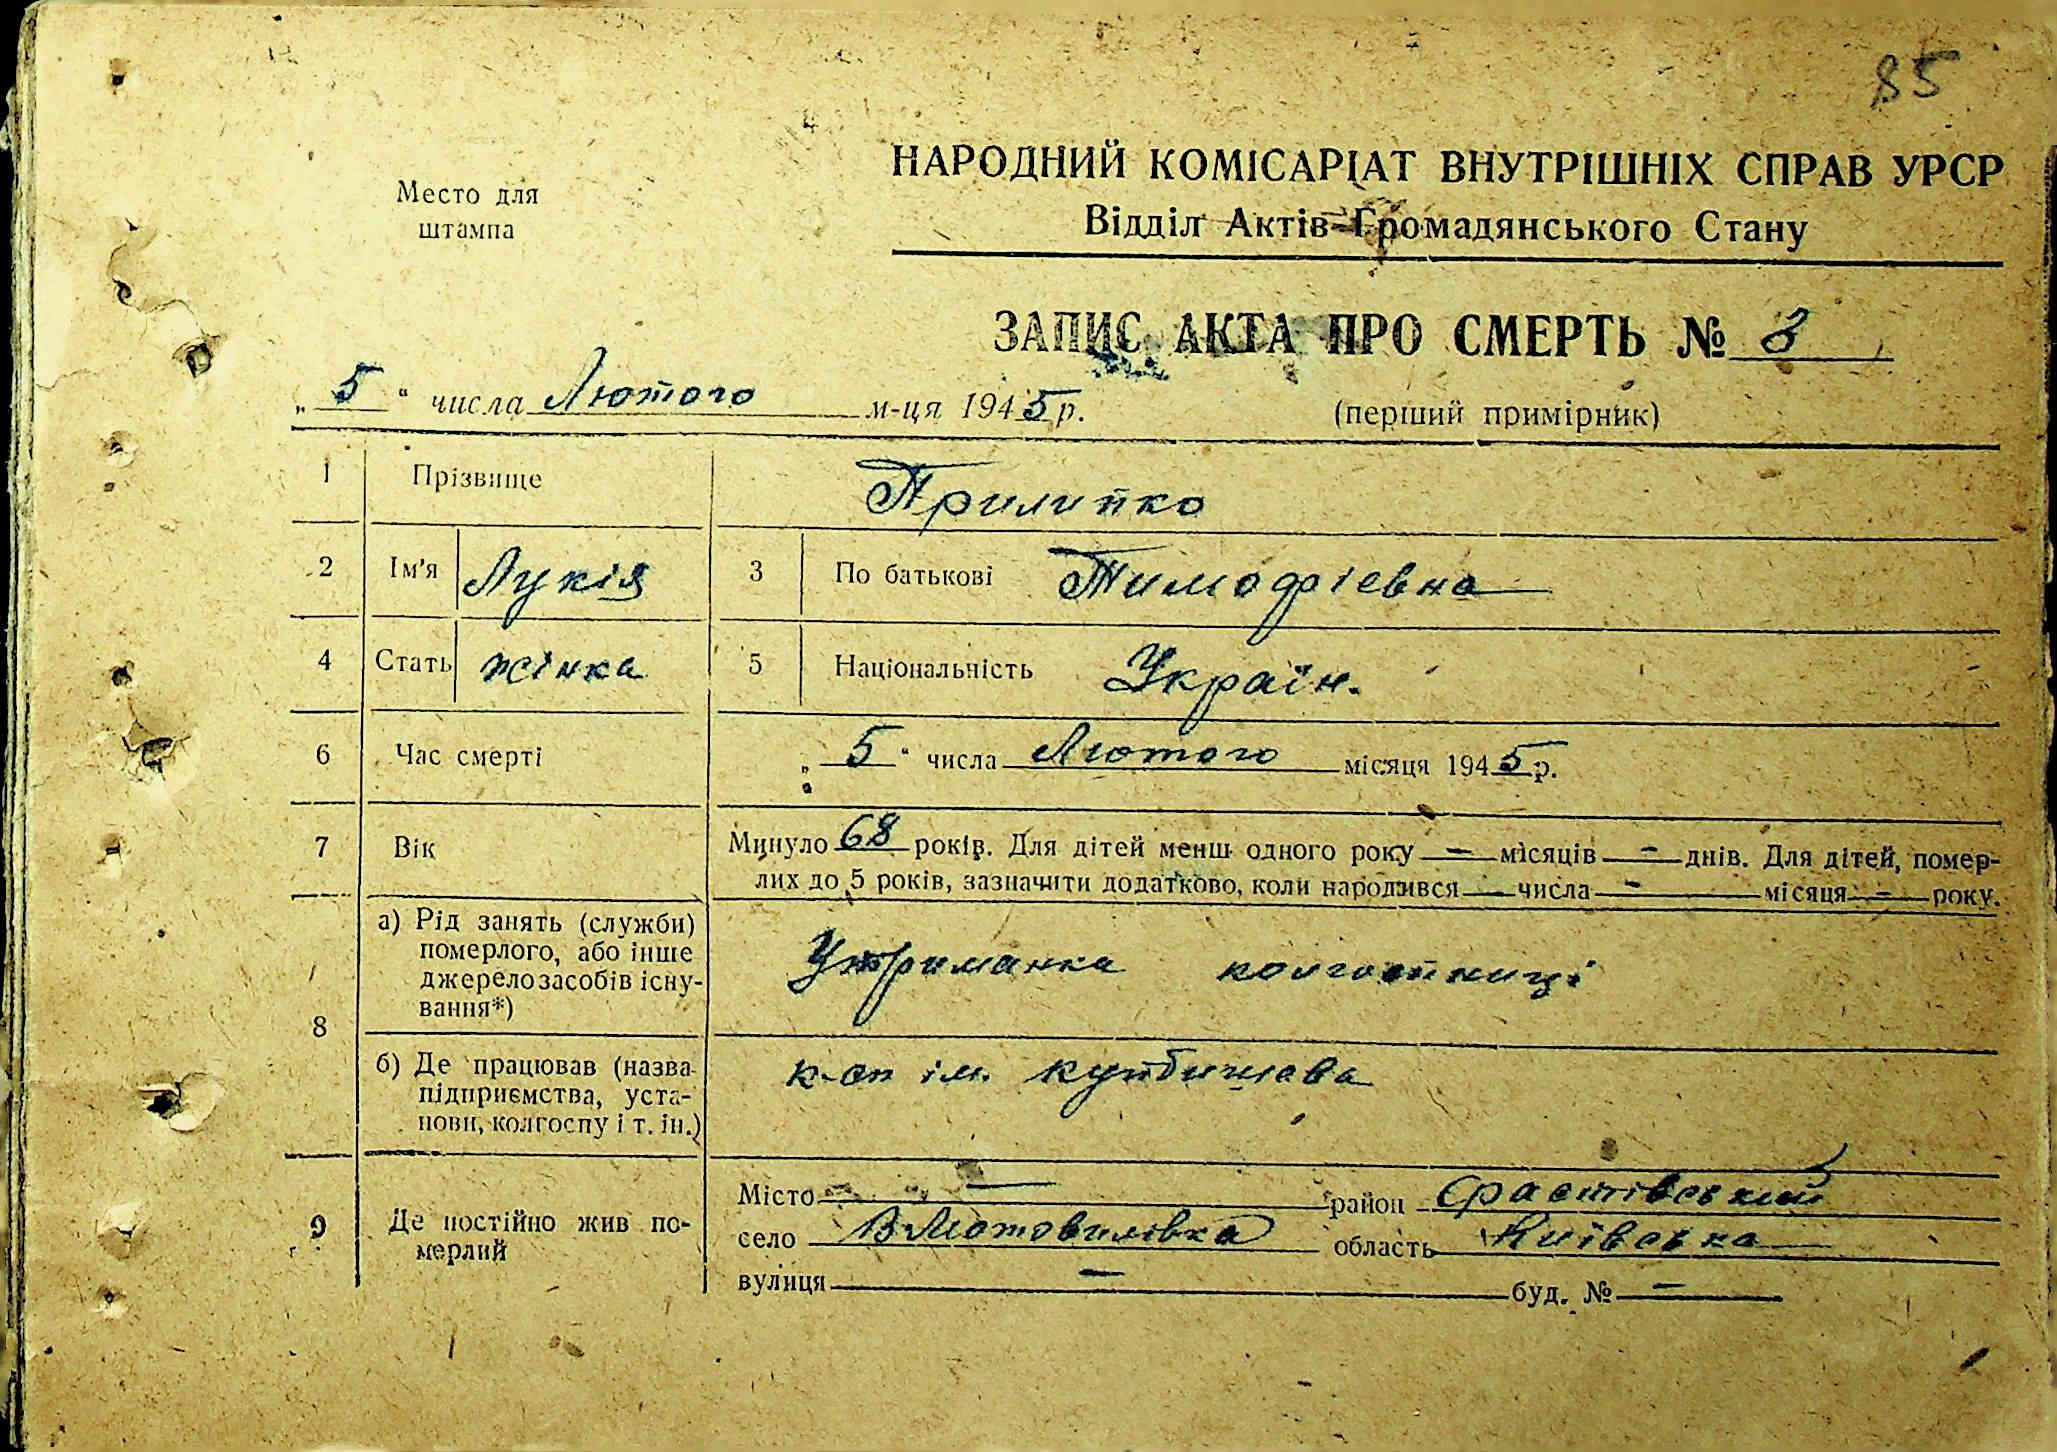 85
Место для
штампа
НАРОДНИЙ КОМІСАРІАТ ВНУТРІШНІХ СПРАВ УРСР
Відділ Актів Громадянського Стану
ЗАПИС АКТА ПРО СМЕРТЬ № 3
„ 5 “ числа Лютого м-ця 1945 р.
(перший примірник)
1 Прізвище Прилипко
2 Ім'я Лукія 3 По батькові Тимофієвна
4 Стать жінка 5 Національність Україн.
6 Час смерті „ 5 “ числа Лютого місяця 1945 р.
7 Вік Минуло 68 років. Для дітей менш одного року — місяців — днів. Для дітей, помер-
лих до 5 років, зазначити додатково, коли народився — числа — місяця — року.
8 а) Рід занять (служби)
померлого, або інше
джерело засобів існу-
вання*)
Утриманка колгоспниці
б) Де працював (назва
підприємства, уста-
нови, колгоспу і т. ін.)
к-сп ім. куйбишева
9 Де постійно жив по-
мерлий
Місто — район Фастівський
село В Мотовилівка область Київська
вулиця — буд. № —